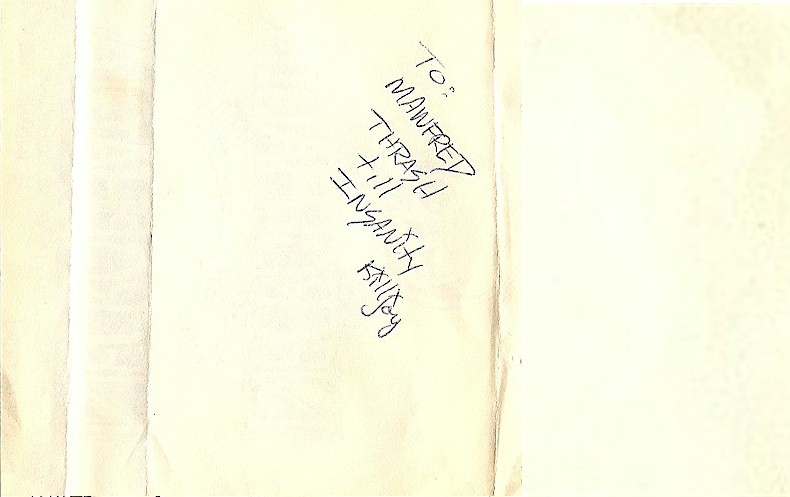 TO:
MANFRED
THRASH
till
INSANity
Killjoy